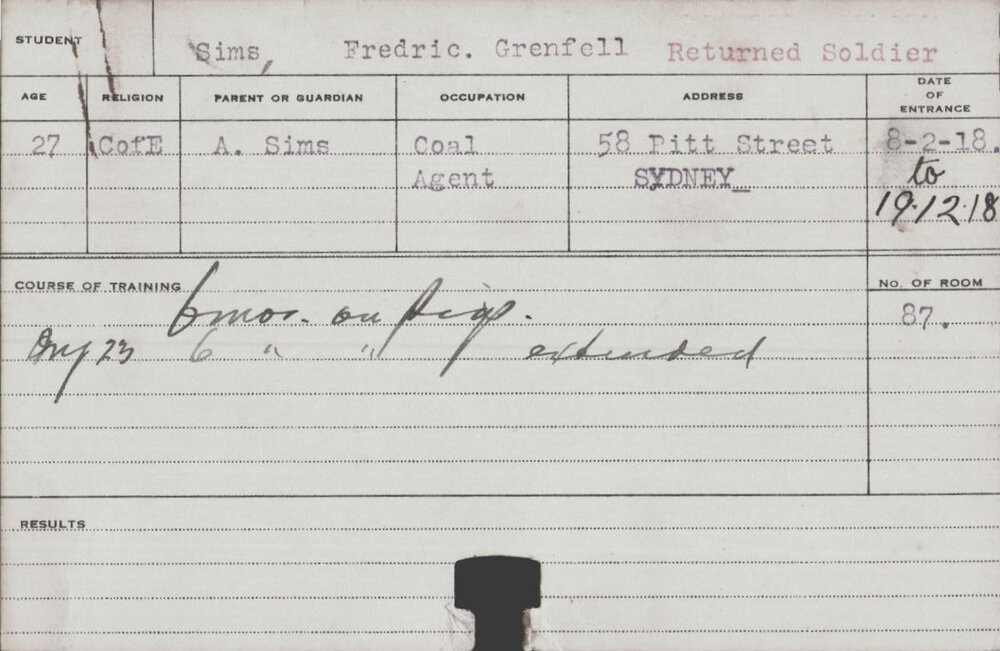 STUDENT Sims, Fredric. Grenfell Returned Soldier
AGE RELIGION PARENT OR GUARDIAN OCCUPATION ADDRESS DATE OF ENTRANCE
27 CofE A. Sims Coal 58 Pitt Street 8-2-18.
Agent SYDNEY_ to
19.12.18
COURSE OF TRAINING 6 mos. on pigs. No. OF ROOM
87.
23 6 " " extended
RESULTS